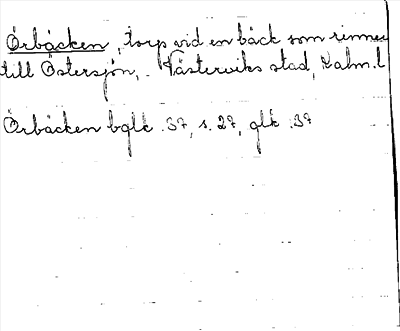 Örbäcken, torp vid en bäck som rinner
till Östersjön, Västerviks stad, Kalm.l.
Örbäcken bglk .37, s. 27, glk .37